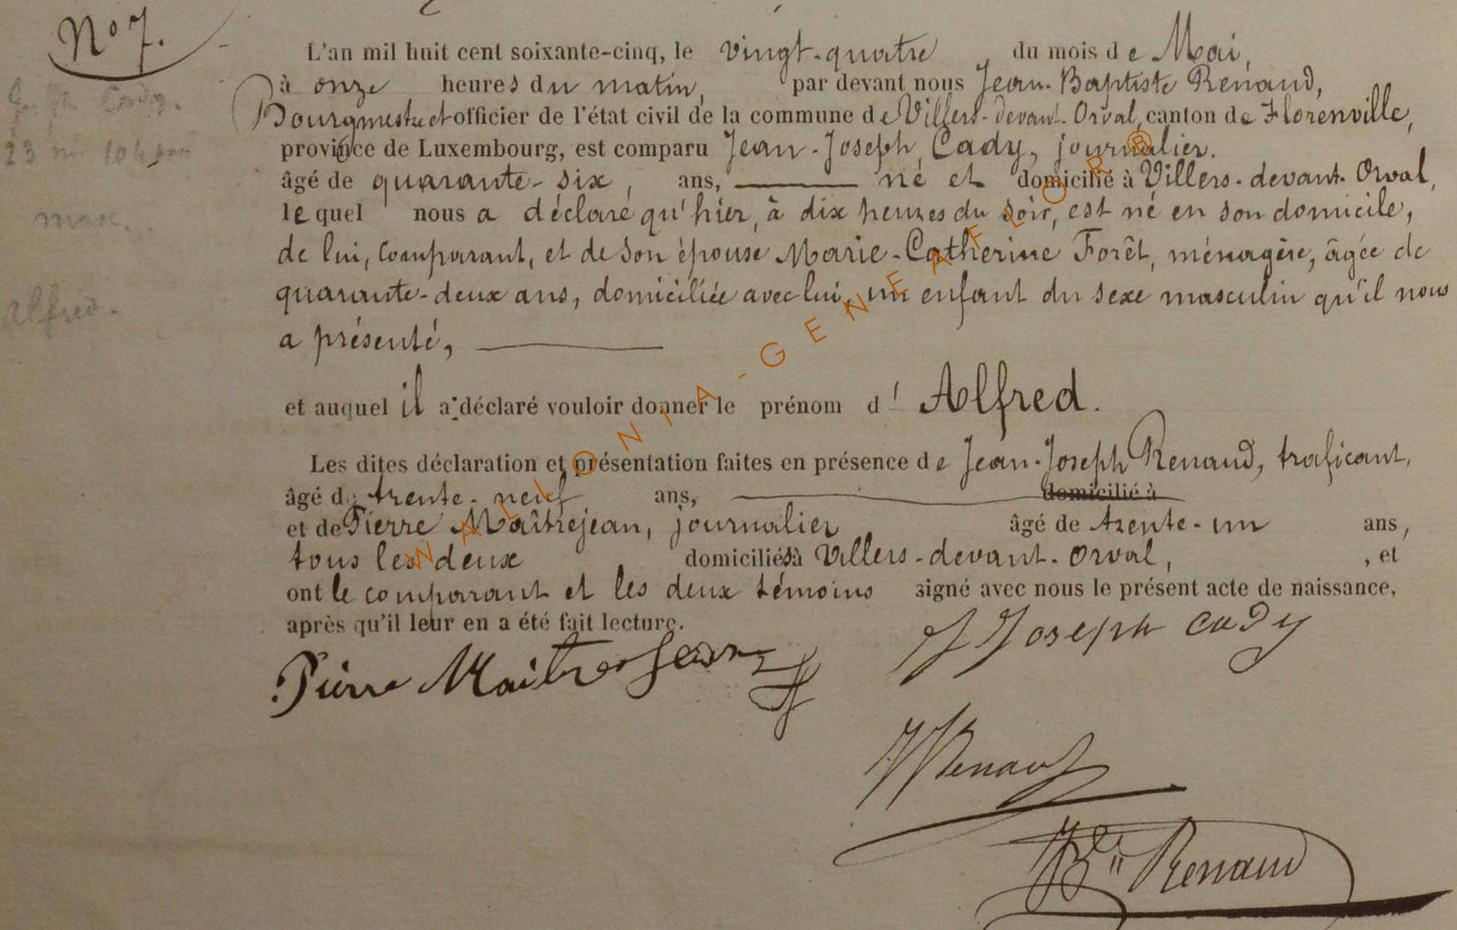 N° 7.
L'an mil huit cent soixante-cinq, le vingt-quatre du mois de Mai,
à onze heures du matin, par devant nous Jean-Baptiste Renaud,
Bourgmestre et officier de l'état civil de la commune de Villers-devant-Orval, canton de Florenville,
province de Luxembourg, est comparu Jean-Joseph Cady, journalier.
âgé de quarante-six, ans, né et domicilié à Villers-devant-Orval,
lequel nous a déclaré qu'hier, à dix heures du soir, est né en son domicile,
de lui, comparant, et de son épouse Marie-Catherine Forêt, ménagère, âgée de
quarante-deux ans, domiciliée avec lui, un enfant du sexe masculin qu'il nous
a présenté,
et auquel il a déclaré vouloir donner le prénom d'Alfred.
Les dites déclaration et présentation faites en présence de Jean-Joseph Renaud, traficant,
âgé de trente-neuf ans, domicilié à
et de Pierre Maîtrejean, journalier âgé de trente-un ans,
tous les deux domiciliés à Villers-devant-Orval, , et
ont le comparant et les deux témoins signé avec nous le présent acte de naissance,
après qu'il leur en a été fait lecture.
Pierre Maitrejean
J Joseph cady
JJ Renaud
J Bte Renaud
Cady.
23
masc.
alfred.
WALLONIA-GENEAFLORB